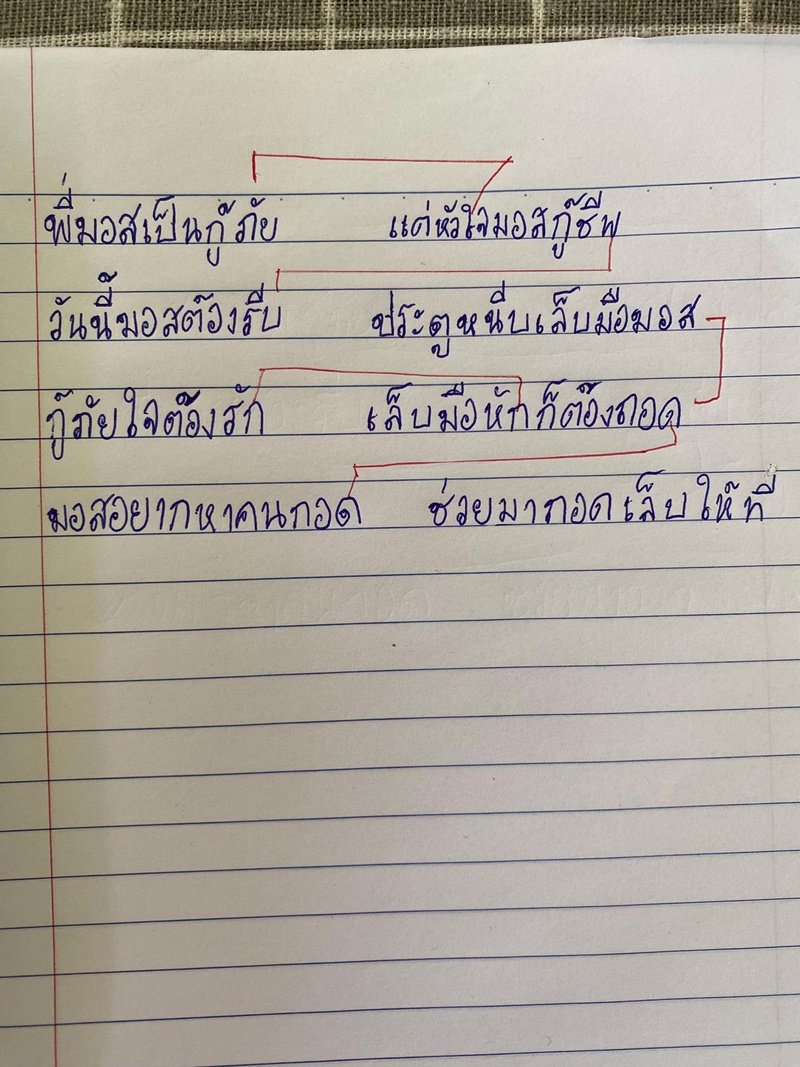 พี่มอสเป็นกู้ภัย แต่หัวใจมอสกู้ชีพ
วันนี้มอสต้องรีบ ประตูหนีบเล็บมือมอส
กู้ภัยใจต้องรัก เล็บมือหักก็ต้องถอด
มอสอยากหาคนกอด ช่วยมาถอดเล็บให้ที